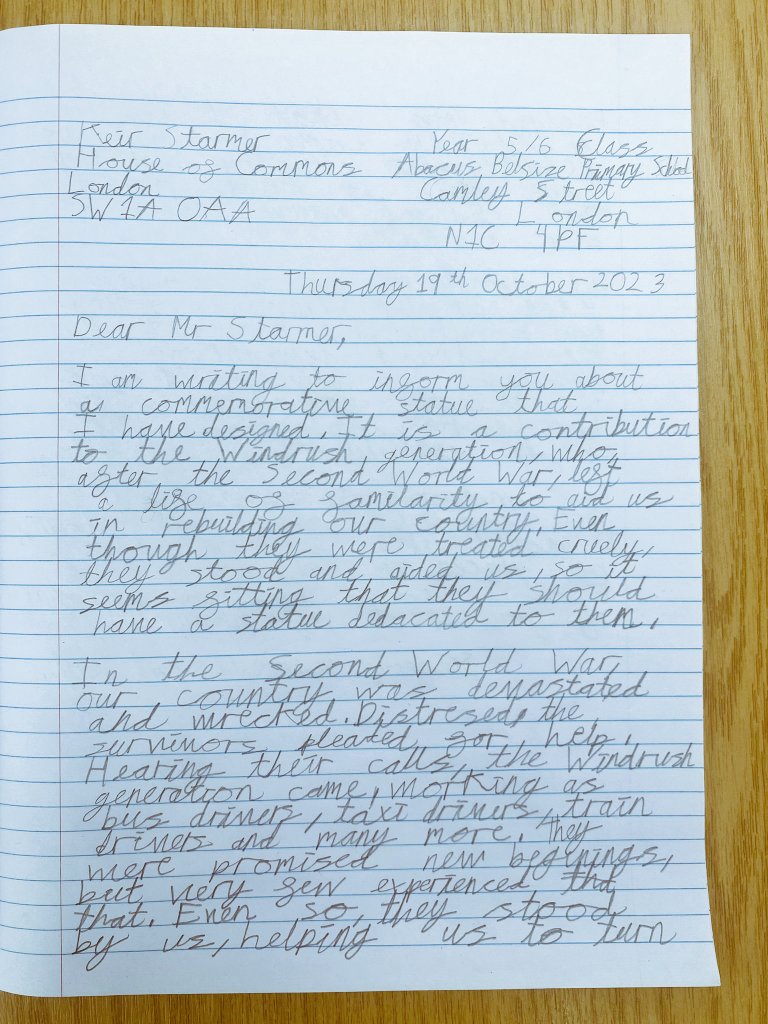 Keir Starmer
Year 5/6 Class
House of Commons
Abacus Belsize Primary School
London
Camley Street
SW1A 0AA
London
N1C 4PF
Thursday 19th October 2023
Dear Mr Starmer,
I am writing to inform you about
a commemorative statue that
I have designed. It is a contribution
to the Windrush generation, who,
after the Second World War, left
a life of familarity to aid us
in rebuilding our country. Even
though they were treated cruely,
they stood and aided us, so it
seems fitting that they should
have a statue dedacated to them.
In the Second World War,
our country was devastated
and wrecked. Distresed, the
survivors pleated for help.
Hearing their calls, the Windrush
generation came, working as
bus drivers, taxi drivers, train
drivers and many more. They
were promised new beginings,
but very few experienced that
that. Even so, they stood
by us, helping us to turn